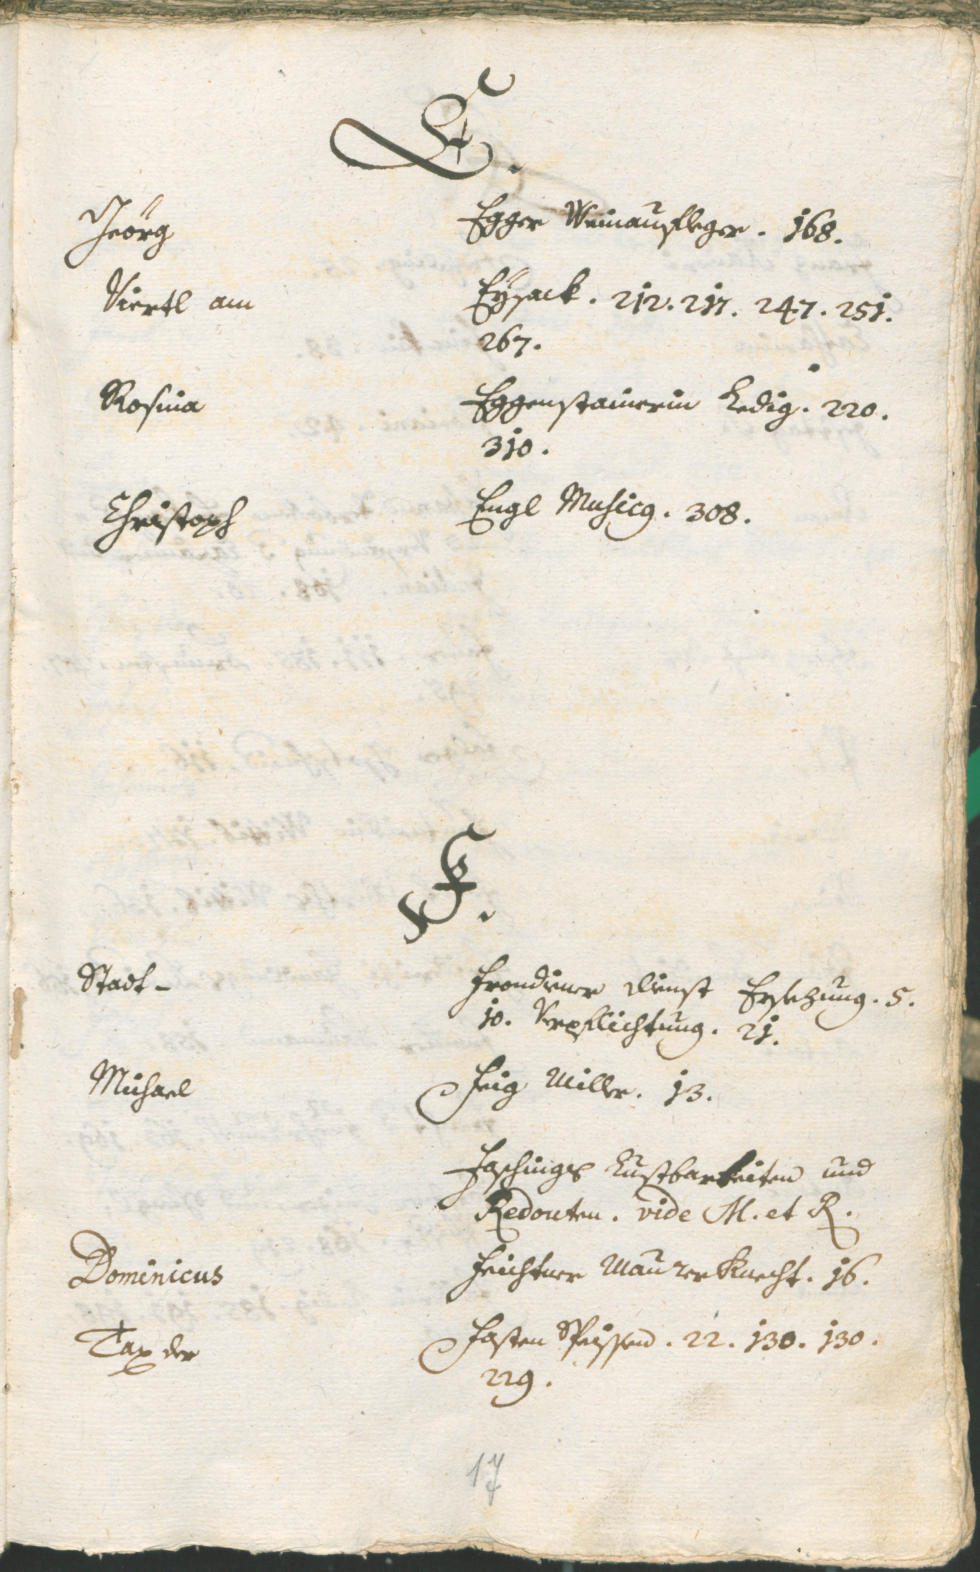 E.
Jeörg Egger Weinausleger. 168.
Viertl am Eÿsack. 212. 217. 247. 251.
267.
Rosina Eggenstainerin Ledig. 220.
310.
Christoph Engl Musicq. 308.
F.
Stadt- Frondiener dienst Ersetzung. 5.
10. Verpflichtung. 21.
Michael Feig Miller. 13.
Faschings Lustbarkeiten und
Redouten. vide M. et R.
Dominicus Feichtner Maurer Knecht. 16.
Tax der Fasten Speissen. 22. 130. 130.
229.
17